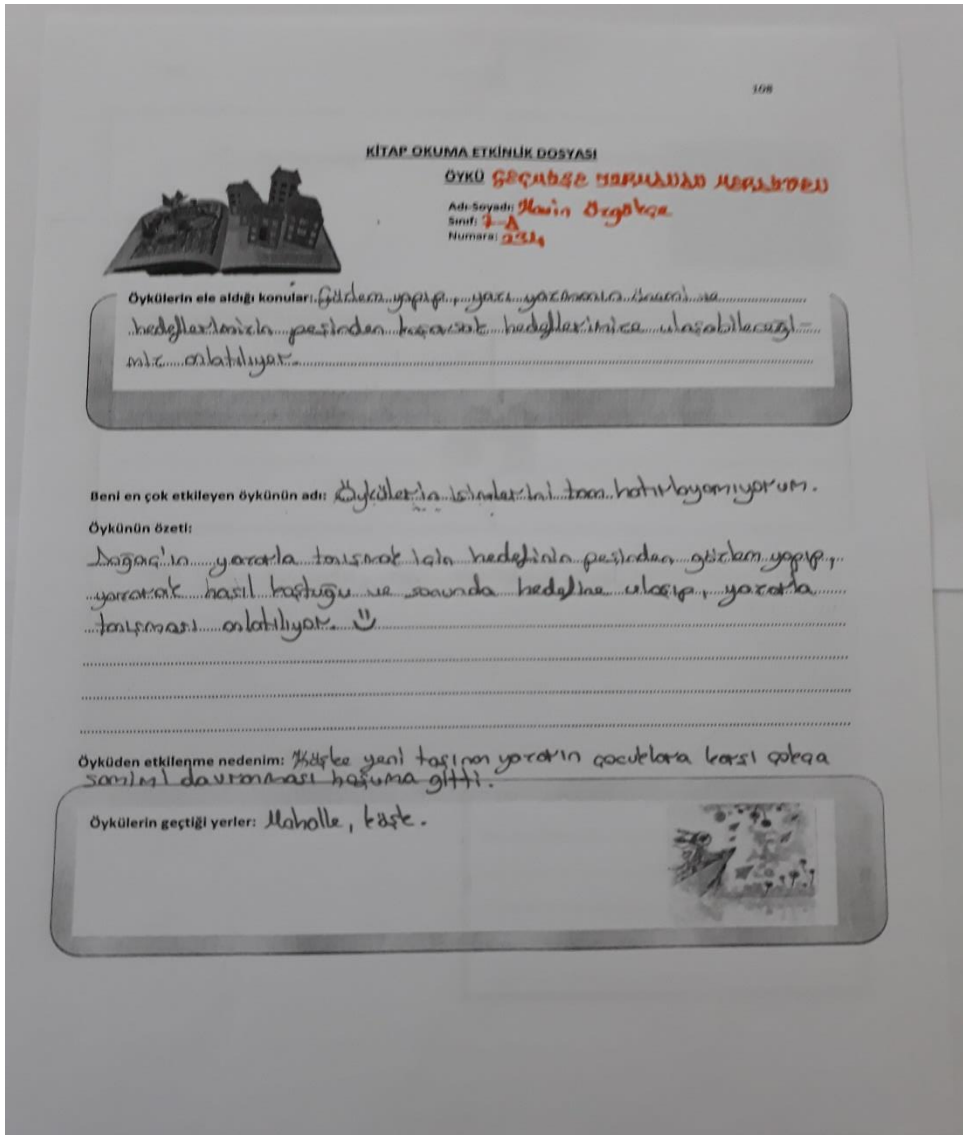 108
KİTAP OKUMA ETKİNLİK DOSYASI
ÖYKÜ
Adı-Soyadı: Özgökçe
Sınıf: 7-A
Numara: 234
Öykülerin ele aldığı konular: Gözlem yapıp, yazı yazmanın önemi ve
hedeflerimizin peşinden koşarsak hedeflerimize ulaşabileceği-
miz anlatılıyor.
Beni en çok etkileyen öykünün adı: Öykülerin isimlerini tam hatırlayamıyorum.
Öykünün özeti:
Doğaç'ın yazarla tanışmak için hedefinin peşinden gözlem yapıp,
yazarak nasıl koştuğu ve sonunda hedefine ulaşıp, yazarla
tanışması anlatılıyor.
Öyküden etkilenme nedenim: Köşke yeni taşınan yazarın çocuklara karşı çokça
samimi davranması hoşuma gitti.
Öykülerin geçtiği yerler: Mahalle, köşk.